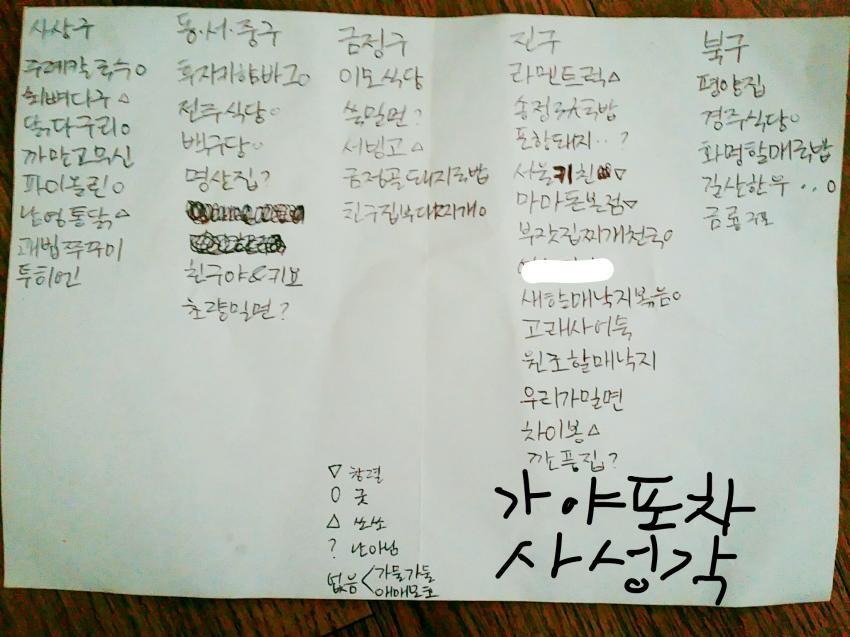 사상구
주례칼국수○
최뼈다구 △
닭다구리○
까만고무신
파이올린○
난영통닭△
괘법쭈꾸미
투히엔
동.서.중구
전주식당○
백구당○
명산집?
친구야&키요
초량밀면?
금정구
이모식당
쑥밀면?
서빙고 △
금정골돼지국밥
친구집부대찌개○
진구
라멘트럭△
송정3대국밥
포항돼지..?
서울키친▽
마마돈본점▽
부잣집찌개천국○
새할매낙지볶음○
고래사어묵
원조할매낙지
우리가밀면
차이봉△
깐풍집?
가야포차
사성각
북구
평양집
경주식당○
화명할매국밥
길산한우..○
금룡
▽ 창렬
○ 굿
△ 쏘쏘
? 난아님
없음< 가물가물
애매모호